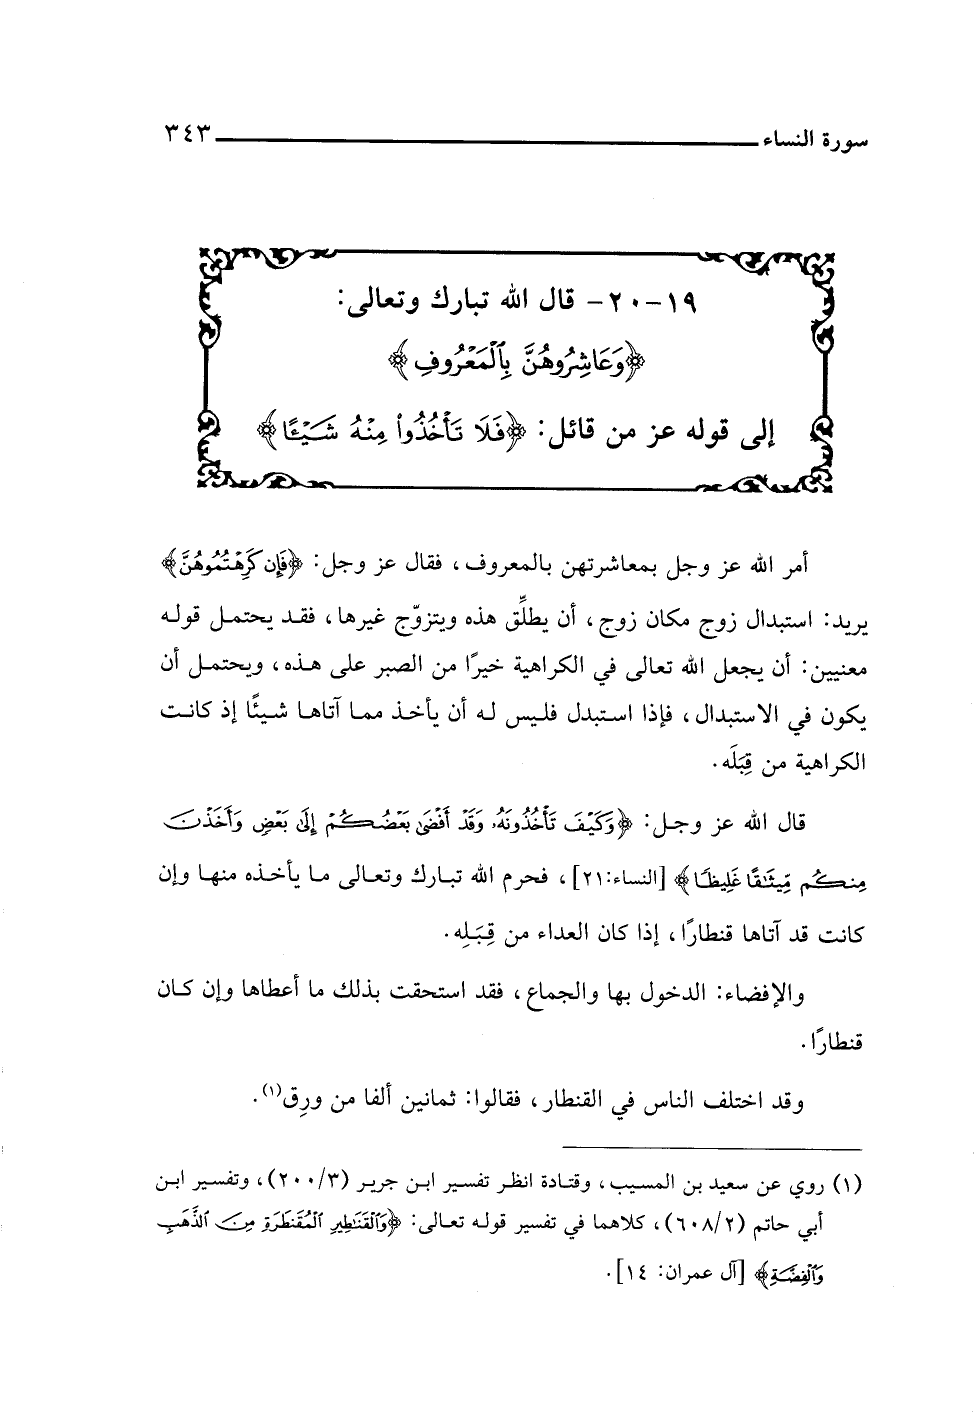 سورة النساء ٣٤٣
١٩-٢٠- قال الله تبارك وتعالى:
﴿وَعَاشِرُوهُنَّ بِٱلْمَعْرُوفِ﴾
إلى قوله عز من قائل: ﴿فَلَا تَأْخُذُوا۟ مِنْهُ شَيْـًٔا﴾
أمر الله عز وجل بمعاشرتهن بالمعروف، فقال عز وجل: ﴿فَإِن كَرِهْتُمُوهُنَّ﴾
يريد: استبدال زوج مكان زوج، أن يطلِّق هذه ويتزوّج غيرها، فقد يحتمل قوله
معنيين: أن يجعل الله تعالى في الكراهية خيرًا من الصبر على هذه، ويحتمل أن
يكون في الاستبدال، فإذا استبدل فليس له أن يأخذ مما آتاها شيئًا إذ كانت
الكراهية من قِبَلَه.
قال الله عز وجل: ﴿وَكَيْفَ تَأْخُذُونَهُۥ وَقَدْ أَفْضَىٰ بَعْضُكُمْ إِلَىٰ بَعْضٍ وَأَخَذْنَ
مِنكُم مِّيثَٰقًا غَلِيظًا﴾ [النساء:٢١]، فحرم الله تبارك وتعالى ما يأخذه منها وإن
كانت قد آتاها قنطارًا، إذا كان العداء من قِبَلِه.
والإفضاء: الدخول بها والجماع، فقد استحقت بذلك ما أعطاها وإن كان
قنطارًا.
وقد اختلف الناس في القنطار، فقالوا: ثمانين ألفا من ورِق(١).
(١) روي عن سعيد بن المسيب، وقتادة انظر تفسير ابن جرير (٢٠٠/٣)، وتفسير ابن
أبي حاتم (٦٠٨/٢)، كلاهما في تفسير قوله تعالى: ﴿وَٱلْقَنَٰطِيرِ ٱلْمُقَنطَرَةِ مِنَ ٱلذَّهَبِ
وَٱلْفِضَّةِ﴾ [آل عمران: ١٤].